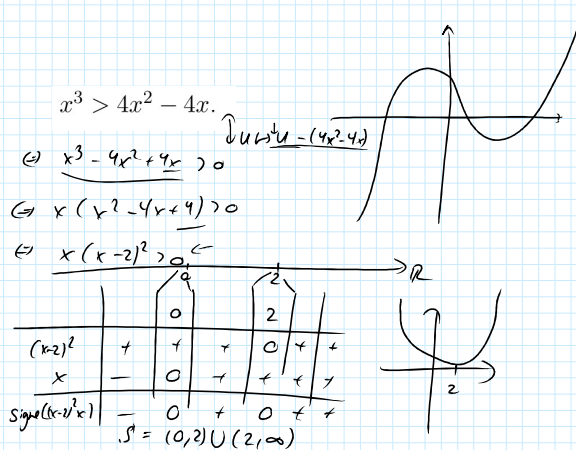 x³ > 4x² − 4x.
↓ u ↦ u − (4x²−4x)
⇔ x³ − 4x² + 4x > 0
⇔ x (x² − 4x + 4) > 0
⇔ x (x − 2)² > 0 ⇐
0 2 ℝ
0 2
(x−2)² + + + 0 + +
x − 0 + + + +
signe((x−2)²x) − 0 + 0 + +
S = (0,2) ∪ (2,∞)
2